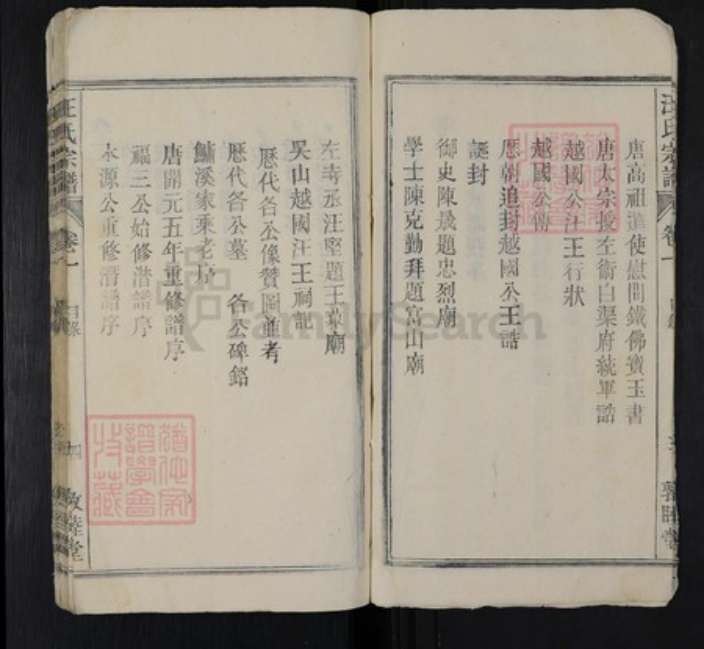 汪氏宗譜
卷一
唐高祖遣使慰問鐵佛寶玉書
唐太宗授左衛白渠府統軍誥
越國公汪王行狀
越國公傳
歷朝追封越國公王誥
誕封
御史陳晟題忠烈廟
學士陳克勤拜題富山廟
左寺丞汪堅題王京廟
吳山越國汪王祠記
歷代各公像贊圖並考
歷代各公墓 各公碑銘
鱅溪家乘老序
唐開元五年重修譜序
福三公始修潛譜序
永源公重修潛譜序
汪氏宗譜
卷一
目錄
四
敦睦堂
譜學會
特藏
FamilySearch